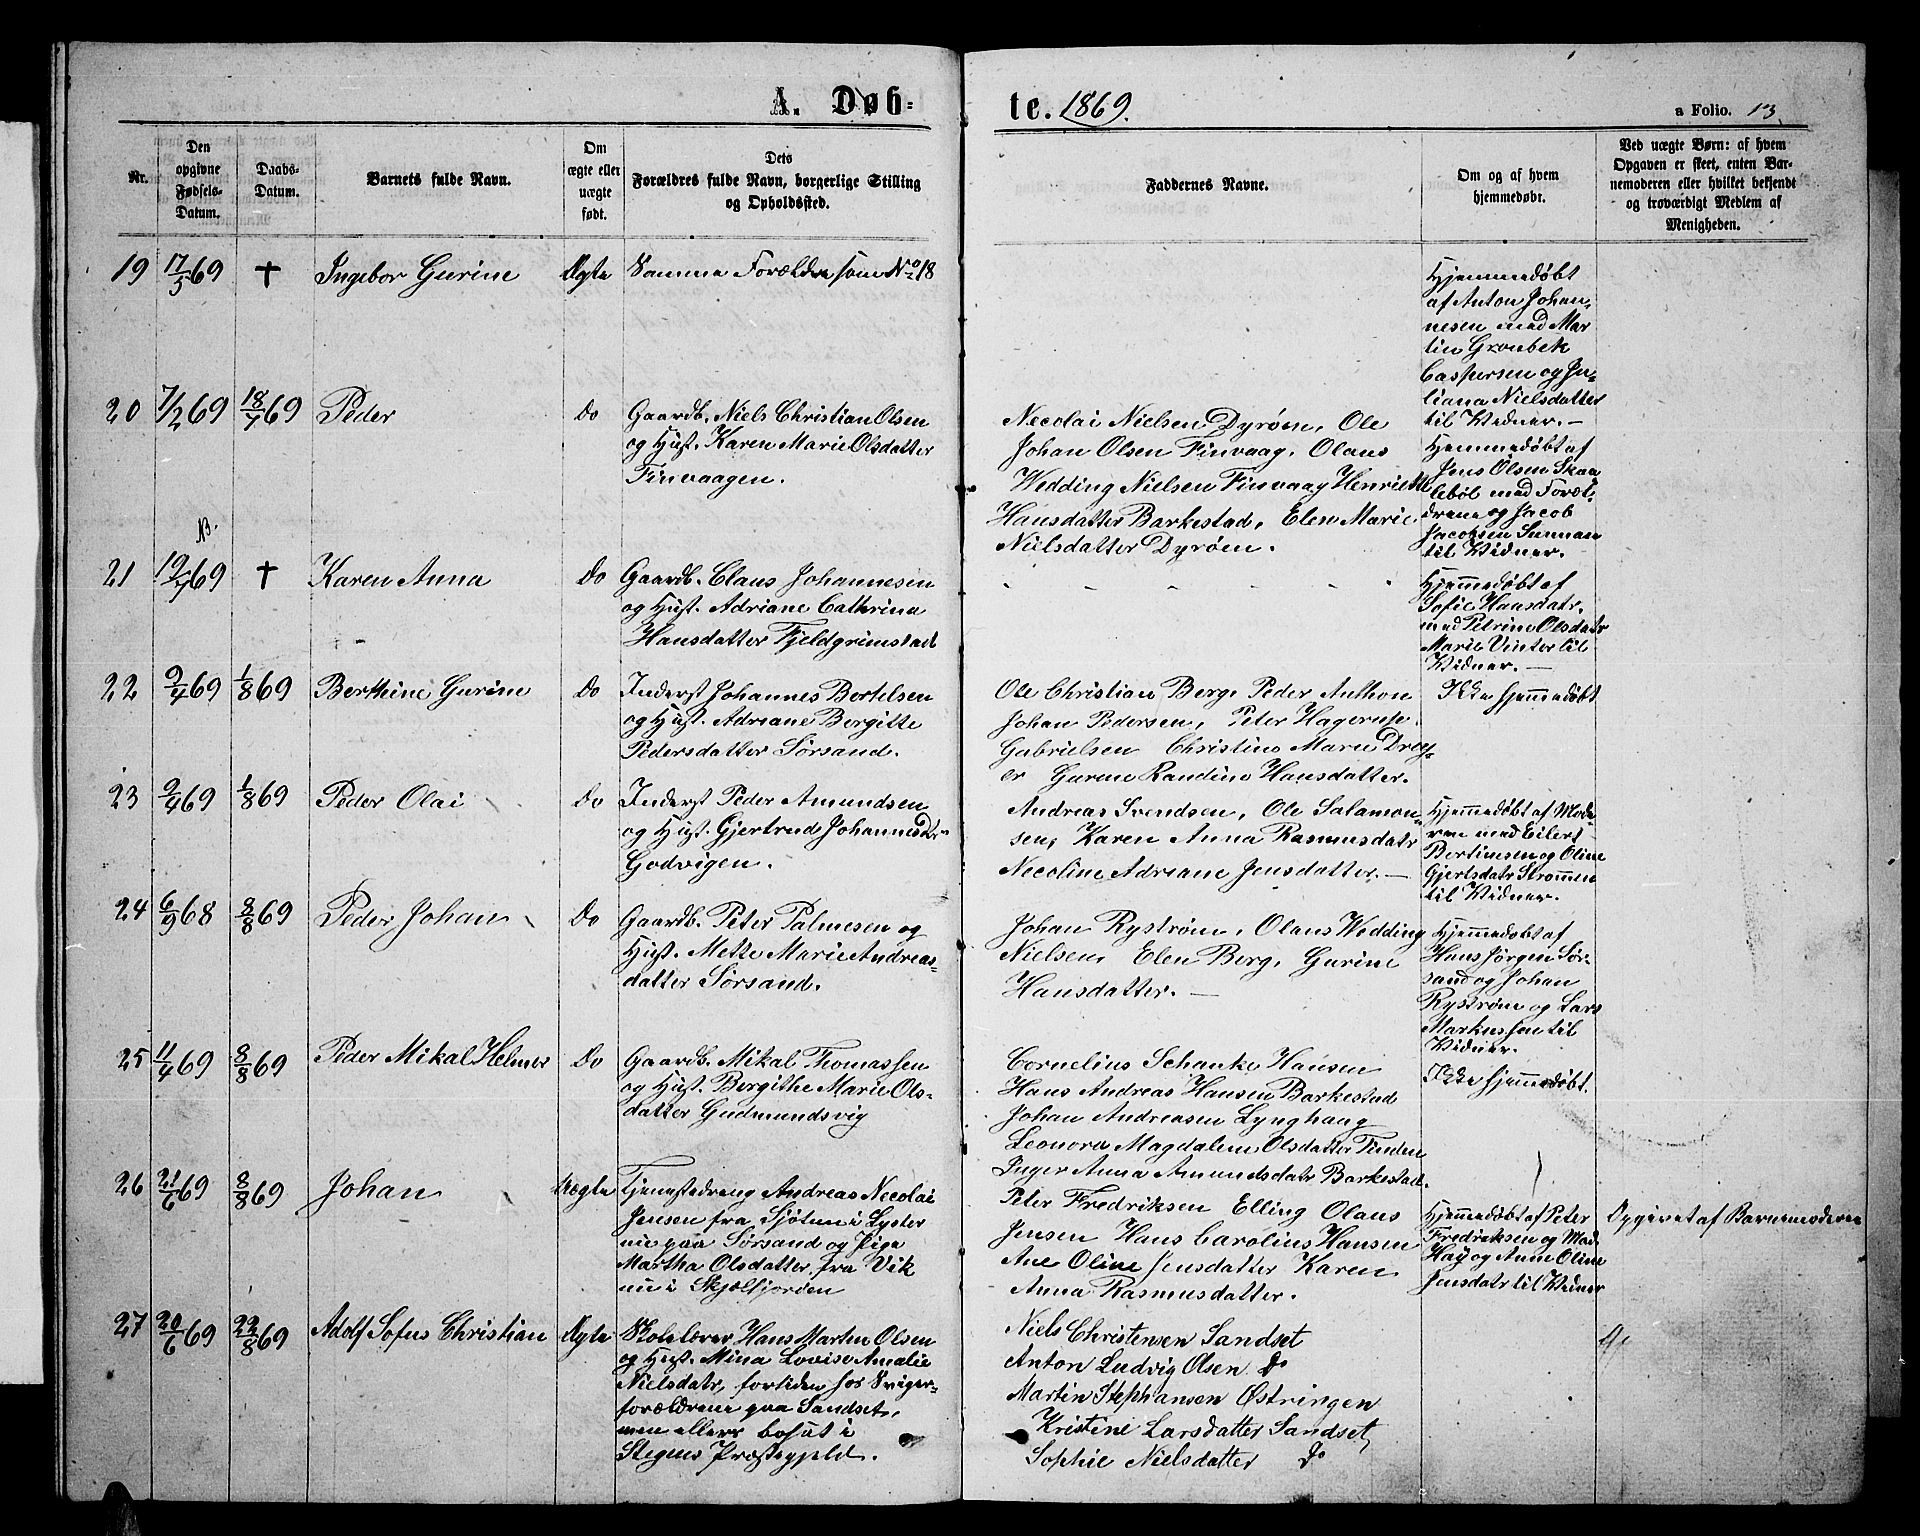 A. Døbte. 1869.
a Folio. 13.
Nr.
Den opgivne Fødsels-Datum.
Daabs-Datum.
Barnets fulde Navn.
Om ægte eller uægte født.
Dets Forældres fulde Navn, borgerlige Stilling og Opholdssted.
Faddernes Navne.
Om og af hvem hjemmedøbt.
Ved uægte Børn: af hvem Opgaven er skeet, enten Barnemoderen eller hvilket bekjendt og troværdigt Medlem af Menigheden.
19 17/5 69 † Ingebor Gurine Ægte Samme Forældre som No 18
Hjemmedøbt
af Anton Johan-
nesen med Mar
tin Grønbek
Caspersen og Ju-
liana Nielsdatter
til Vidner. –
20 7/2 69 18/7 69 Peder Do Gaardb. Niels Christian Olsen
og Hust. Karen Marie Olsdatter
Finvaagen.
Necolai Nielsen Dyrøen, Ole
Johan Olsen Finvaag, Olaus
Wedding Nielsen Finvaag Henriette
Hansdatter Barkestad, Elen Marie
Nielsdatter Dyrøen.
Hjemmedøbt af
Jens Olsen Skaa
lebøl med Foræl-
drene og Jacob
Jacobsen Sunnan
til Vidner.
NB.
21 19/7 69 † Karen Anna Do Gaardb. Claus Johannesen
og Hust. Adriane Cathrina
Hansdatter Fjeldgrimstad
Hjemmedøbt af
Sofie Hansdatr.
med Petrine Olsdatr
Marie Vinter til
Vidner. –
22 9/4 69 1/8 69 Berthine Gurine Do Inderst Johannes Bertelsen
og Hust. Adriane Bergitte
Pedersdatter Sørsand.
Ole Christian Berg, Peder Anthon
Johan Pedersen, Peter Hagerup
Gabrielsen Christine Marie Drey-
er Gurine Randine Hansdatter.
Ikke hjemmedøbt
23 2/4 69 1/8 69 Peder Olai Do Inderst Peder Amundsen
og Hust. Gjertrud Johannesdtr
Godvigen.
Andreas Svendsen, Ole Salamon-
sen, Karen Anna Rasmusdatr
Necoline Adriane Jensdatter. –
Hjemmedøbt af Mode
ren med Eilert
Bertinesen og Oline
Gjertsdatr Strømmen
til Vidner.
24 6/9 68 8/8 69 Peder Johan Do Gaardb. Peter Palmesen og
Hust. Mette Marie Andreas-
datter Sørsand.
Johan Rystrøm, Olaus Wedding
Nielsen, Elen Berg, Gurine
Hansdatter. –
Hjemmedøbt af
Hans Jørgen Sør-
sand og Johan
Rystrøm og Lars
Markussen til
Vidner.
25 11/4 69 8/8 69 Peder Mikal Helmer Do Gaardb. Mikal Thomassen
og Hust. Bergithe Marie Ols-
datter Gudmundsvig
Cornelius Schanke Hansen
Hans Andreas Hansen Barkestad
Johan Andreasen Lynghaug
Leonora Magdalene Olsdatter Finden
Inger Anna Amundsdatr Barkestad.
Ikke hjemmedøbt.
26 21/6 69 8/8 69 Johan Uægte Tjenestedreng Andreas Necolai
Jensen fra Sjøtun i Lyster
nu paa Sørsand og Pige
Martha Olsdatter fra Vik
nu i Skjælfjorden
Peter Fredriksen Elling Olaus
Jensen Hans Carolius Hansen
Ane Oline Jensdatter Karen
Anna Rasmusdatter.
Hjemmedøbt af Peter
Fredriksen og Mad.
Hay og Anne Oline
Jensdatr til Vidner
Opgivet af Barnemoderen
27 20/6 69 22/8 69 Adolf Sofus Christian Ægte Skolelærer Hans Martin Olsen
og Hust. Mina Lovise Amalie
Nielsdatr, fortiden hos Sviger-
forældrene paa Sandset,
men ellers bosat i
Stegens Præstegjeld.
Niels Christensen Sandset
Anton Ludvig Olsen Do
Martin Stephansen Østringen
Kristine Larsdatter Sandset
Sophie Nielsdatter Do